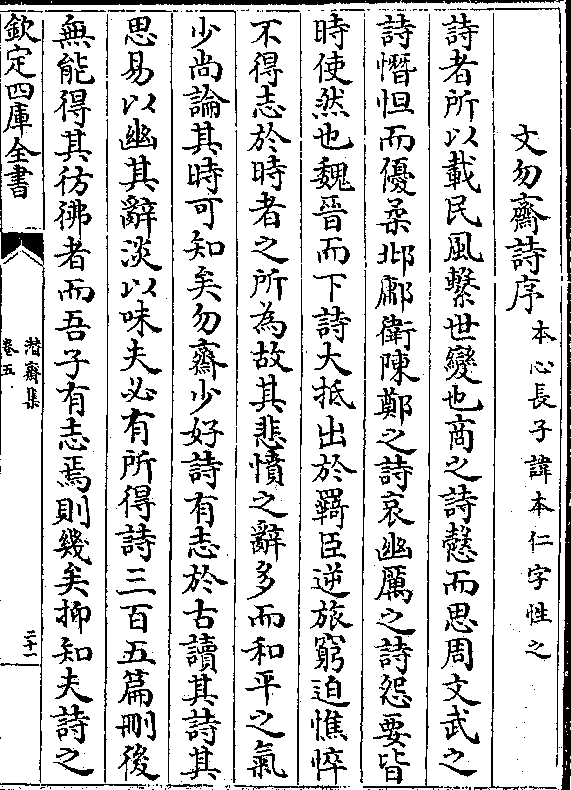 文勿齋詩序本心長子諱本仁字性之
詩者所以載民風繫世變也商之詩慤而思周文武之
詩憯怛而優柔邶鄘衛陳鄭之詩哀幽厲之詩怨要皆
時使然也魏晉而下詩大抵出於羇臣逆旅窮迫憔悴
不得志於時者之所為故其悲憤之辭多而和平之氣
少尚論其時可知矣勿齋少好詩有志於古讀其詩其
思易以幽其辭淡以味夫必有所得詩三百五篇刪後
無能得其彷彿者而吾子有志焉則幾矣抑知夫詩之
欽定四庫全書
潛齋集
卷五
二十一